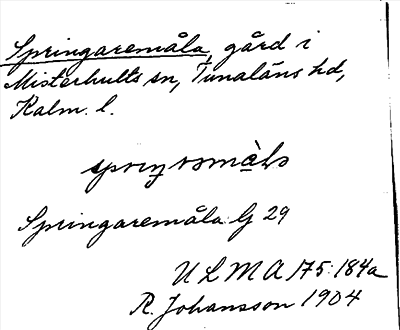 Springaremåla, gård i
Misterhults sn, Tunaläns hd,
Kalm. l.
Springaremåla G 29
ULMA 175:184a
R. Johansson 1904